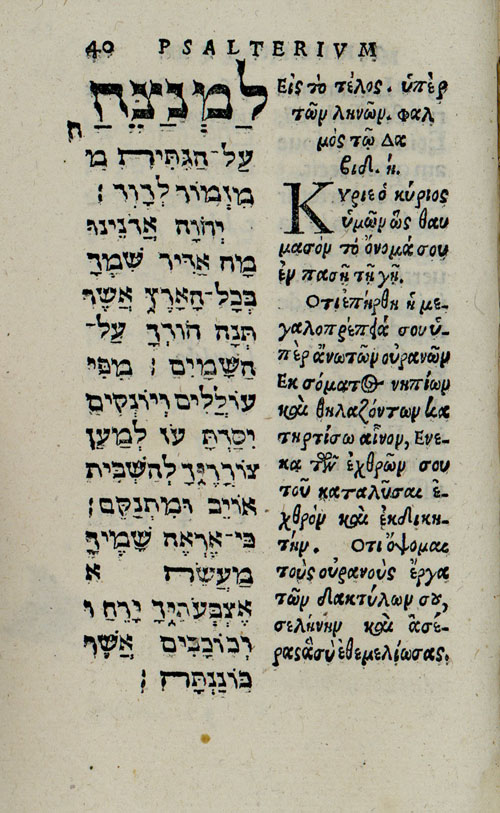 40 PSALTERIVM
לַמְנַצֵּחַ
ח
עַל־הַגִּתִּית מִ
מִזְמוֹר לְדָוִד ׃
יְהֹוָה אֲדֹנֵינוּ
מָה אַדִּיר שִׁמְךָ
בְּכָל־הָאָרֶץ אֲשֶׁר
תְּנָה הוֹדְךָ עַל־
הַשָּׁמָיִם ׃ מִפִּי
עוֹלְלִים וְיוֹנְקִים
יִסַּדְתָּ עֹז לְמַעַן
צוֹרְרֶיךָ לְהַשְׁבִּית
אוֹיֵב וּמִתְנַקֵּם ׃
כִּי־אֶרְאֶה שָׁמֶיךָ
מַעֲשֵׂה א
אֶצְבְּעֹתֶיךָ יָרֵחַ ו
וְכוֹכָבִים אֲשֶׁר
כּוֹנָנְתָּה ׃
Εἰς τὸ τέλος. ὑπὲρ
τῶν ληνῶν. ψαλ
μὸς τῷ Δα
βίδ. ή.
Κύριε ὁ κύριος
ὑμῶν ὡς θαυ
μασὸν τὸ ὄνομά σου
ἐν πασῇ τῇ γῇ.
Οτι ἐπήρθη ἡ με-
γαλοπρέπειά σου ὑ-
πὲρ ἄνω τῶν οὐρανῶν
Εκ σόματος νηπίων
καὶ θηλαζόντων κα
τηρτίσω αἶνον, Ενε-
κα τῶν ἐχθρῶν σου
τοῦ καταλῦσαι ἐ-
χθρὸν καὶ ἐκδικη-
τήν. Οτι ὄψομαι
τοὺς οὐρανοὺς ἔργα
τῶν δακτύλων σου,
σελήνην καὶ ἀσέ-
ρας ἃ σὺ ἐθεμελίωσας.